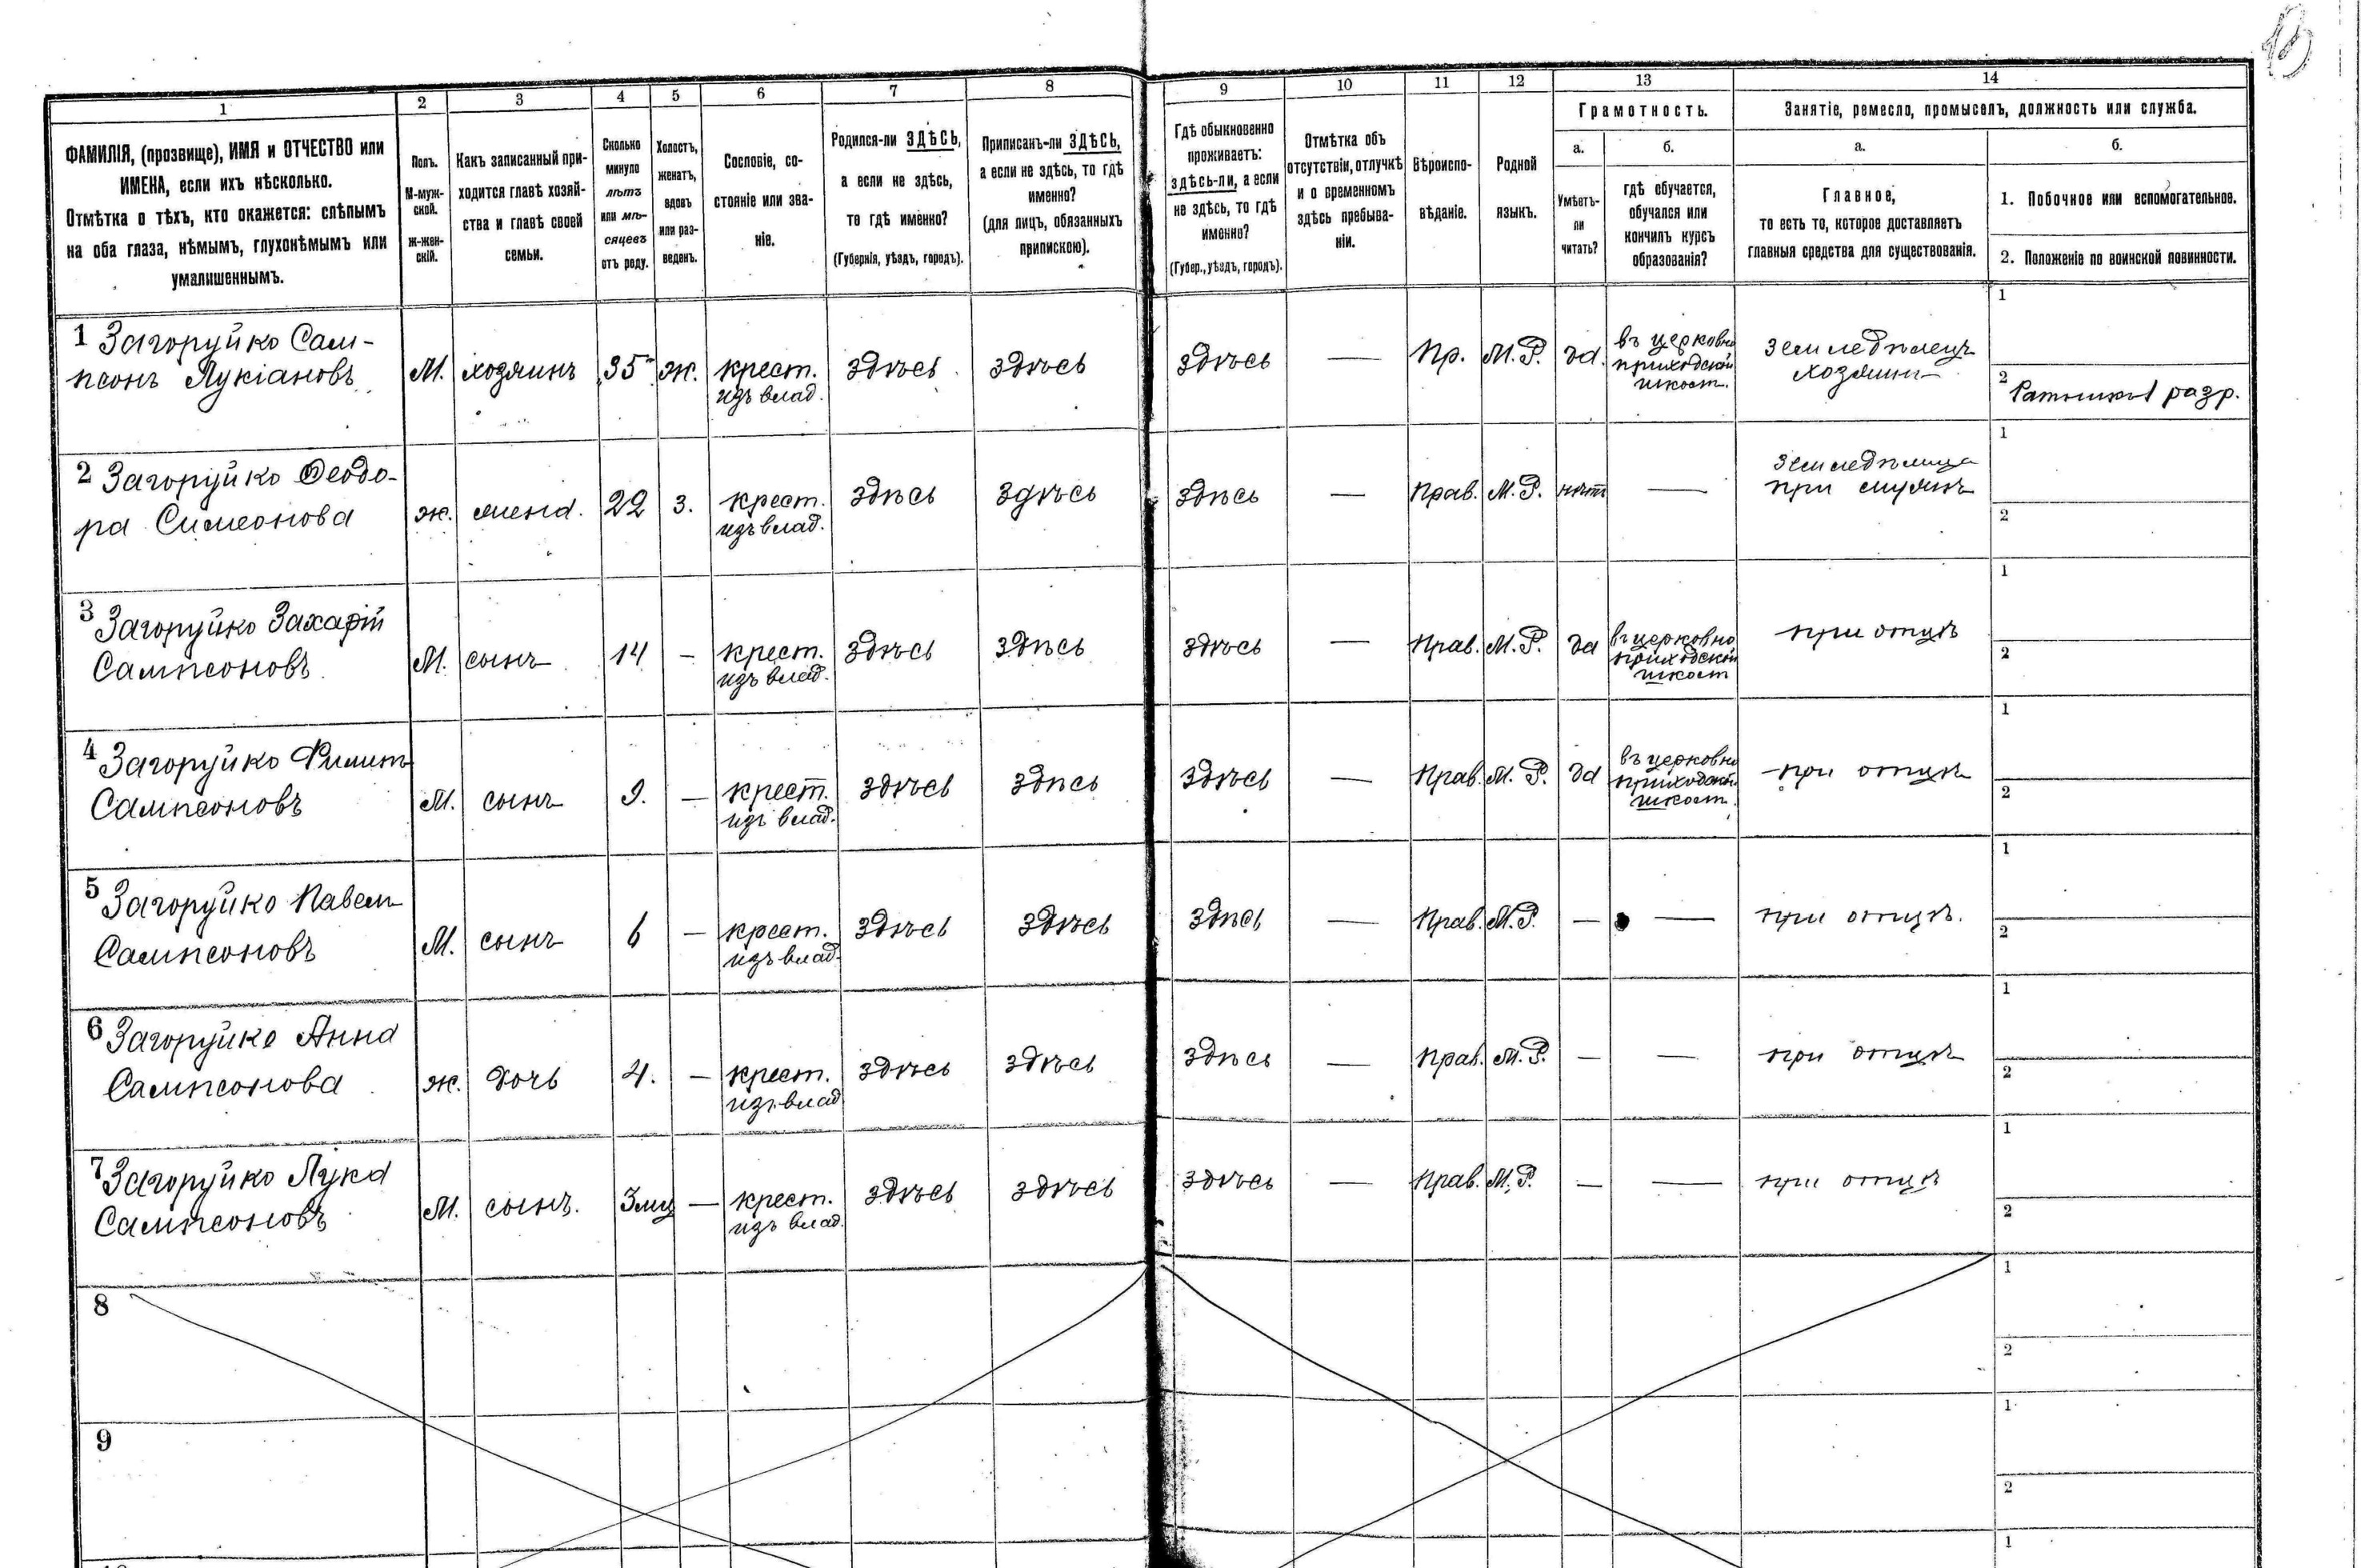 1 2 3 4 5 6 7 8 9 10 11 12 13 14
ФАМИЛІЯ, (прозвище), ИМЯ и ОТЧЕСТВО или
ИМЕНА, если ихъ нѣсколько.
Отмѣтка о тѣхъ, кто окажется: слѣпымъ
на оба глаза, нѣмымъ, глухонѣмымъ или
умалишеннымъ.
Полъ.
М-муж-
ской.
Ж-жен-
скій.
Какъ записанный при-
ходится главѣ хозяй-
ства и главѣ своей
семьи.
Сколько
минуло
лѣтъ
или мѣ-
сяцевъ
отъ роду.
Холостъ,
женатъ,
вдовъ
или раз-
веденъ.
Сословіе, со-
стояніе или зва-
ніе.
Родился-ли ЗДѢСЬ,
а если не здѣсь,
то гдѣ именно?
(Губернія, уѣздъ, городъ).
Приписанъ-ли ЗДѢСЬ,
а если не здѣсь, то гдѣ
именно?
(для лицъ, обязанныхъ
припискою).
Гдѣ обыкновенно
проживаетъ:
здѣсь-ли, а если
не здѣсь, то гдѣ
именно?
(Губер., уѣздъ, городъ).
Отмѣтка объ
отсутствіи, отлучкѣ
и о временномъ
здѣсь пребыва-
ніи.
Вѣроиспо-
вѣданіе.
Родной
языкъ.
Грамотность.
а.
Умѣетъ-
ли
читать?
б.
гдѣ обучается,
обучался или
кончилъ курсъ
образованія?
Занятіе, ремесло, промыселъ, должность или служба.
а.
Главное,
то есть то, которое доставляетъ
главныя средства для существованія.
б.
1. Побочное или вспомогательное.
2. Положеніе по воинской повинности.
1 Загоруйко Сам-
псонъ Лукіановъ
М. хозяинъ 35 ж. крест.
изъ влад.
здѣсь здѣсь здѣсь — Пр. М.Р. да.
въ церковно
приходской
школѣ.
земледѣлецъ
хозяинъ
1
2 Ратникъ 1 разр.
2 Загоруйко Ѳеодо-
ра Симеонова
ж. жена. 22 з. крест.
изъ влад.
здѣсь здѣсь здѣсь — Прав. М.Р. нѣтъ —
земледѣлица
при мужѣ
1
2
3 Загоруйко Захарій
Сампсоновъ
М. сынъ 14 — крест.
изъ влад.
здѣсь здѣсь здѣсь — Прав. М.Р. да
въ церковно
приходской
школѣ
при отцѣ
1
2
4 Загоруйко Филипъ
Сампсоновъ
М. сынъ 9. — крест.
изъ влад.
здѣсь здѣсь здѣсь — Прав. М.Р. да
въ церковно
приходской
школѣ.
при отцѣ
1
2
5 Загоруйко Павелъ
Сампсоновъ
М. сынъ 6 — крест.
изъ влад.
здѣсь здѣсь здѣсь — Прав. М.Р. — —
при отцѣ.
1
2
6 Загоруйко Анна
Сампсонова
ж. дочь 4. — крест.
изъ влад
здѣсь здѣсь здѣсь — Прав. М.Р. — —
при отцѣ
1
2
7 Загоруйко Лука
Сампсоновъ
М. сынъ. 3 мц — крест.
изъ влад.
здѣсь здѣсь здѣсь — Прав. М.Р. — —
при отцѣ
1
2
8
1
2
9
1
2
1